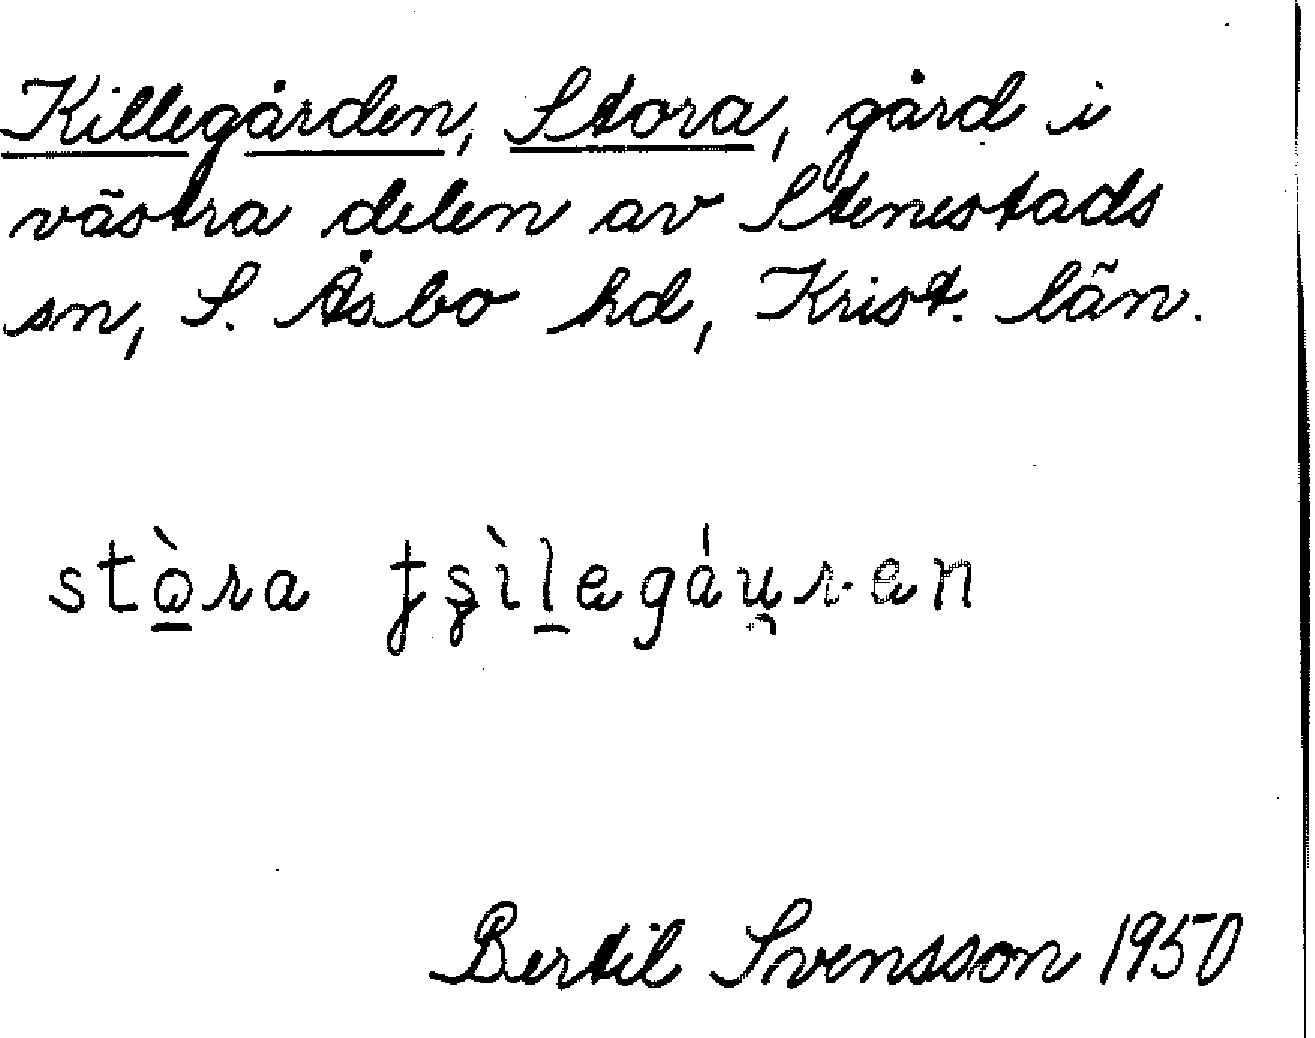 Killegården, Stora, gård i
västra delen av Stenestads
sn, S. Åsbo hd, Krist. län.
stò̲ra
Bertil Svensson 1950